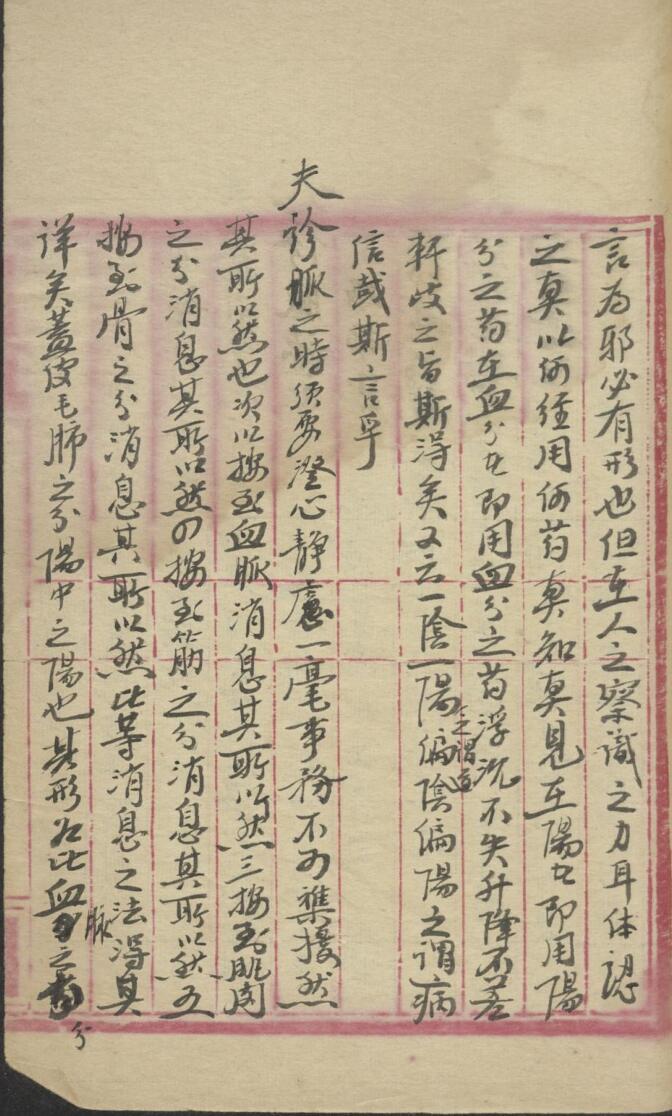 言为邪必有形也但在人之察识之力耳体認
之真以何经用何药真知真見在陽分即用陽
分之药在血分即用血分之药浮沉不失升降不差
軒岐之旨斯得矣又云一陰一陽之謂道偏陰偏陽之謂病
信哉斯言乎
夫診脈之時須要澄心静慮一毫事務不可襍擾然
其所以然也次以按至血脈消息其所以然三按至肌肉
之分消息其所以然四按至筋之分消息其所以然五
按至骨之分消息其所以然此等消息之法得其
详矣蓋皮毛肺之分陽中之陽也其形如此血脈之分